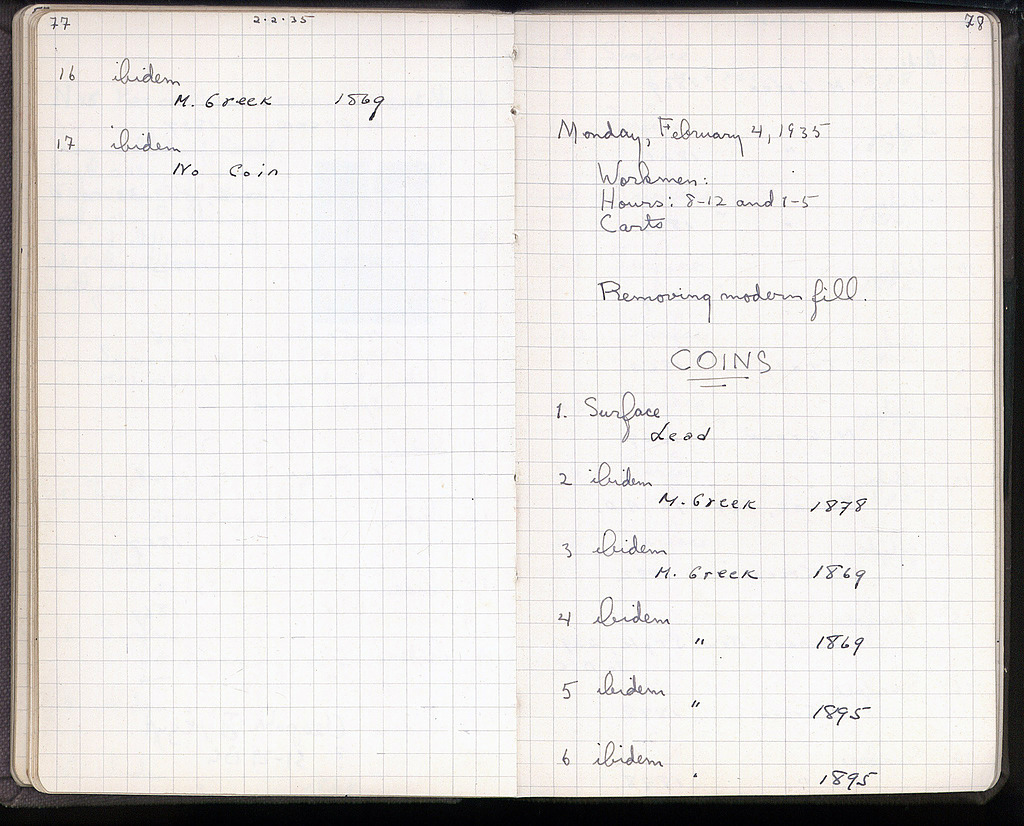 77
2·2·35
16 ibidem
M. Greek 1869
17 ibidem
No Coin
78
Monday, February 4, 1935
Workmen:
Hours: 8-12 and 1-5
Carts
Removing modern fill.
COINS
1. Surface
Lead
2 ibidem
M. Greek 1878
3 ibidem
M. Greek 1869
4 ibidem
" 1869
5 ibidem
" 1895
6 ibidem
" 1895